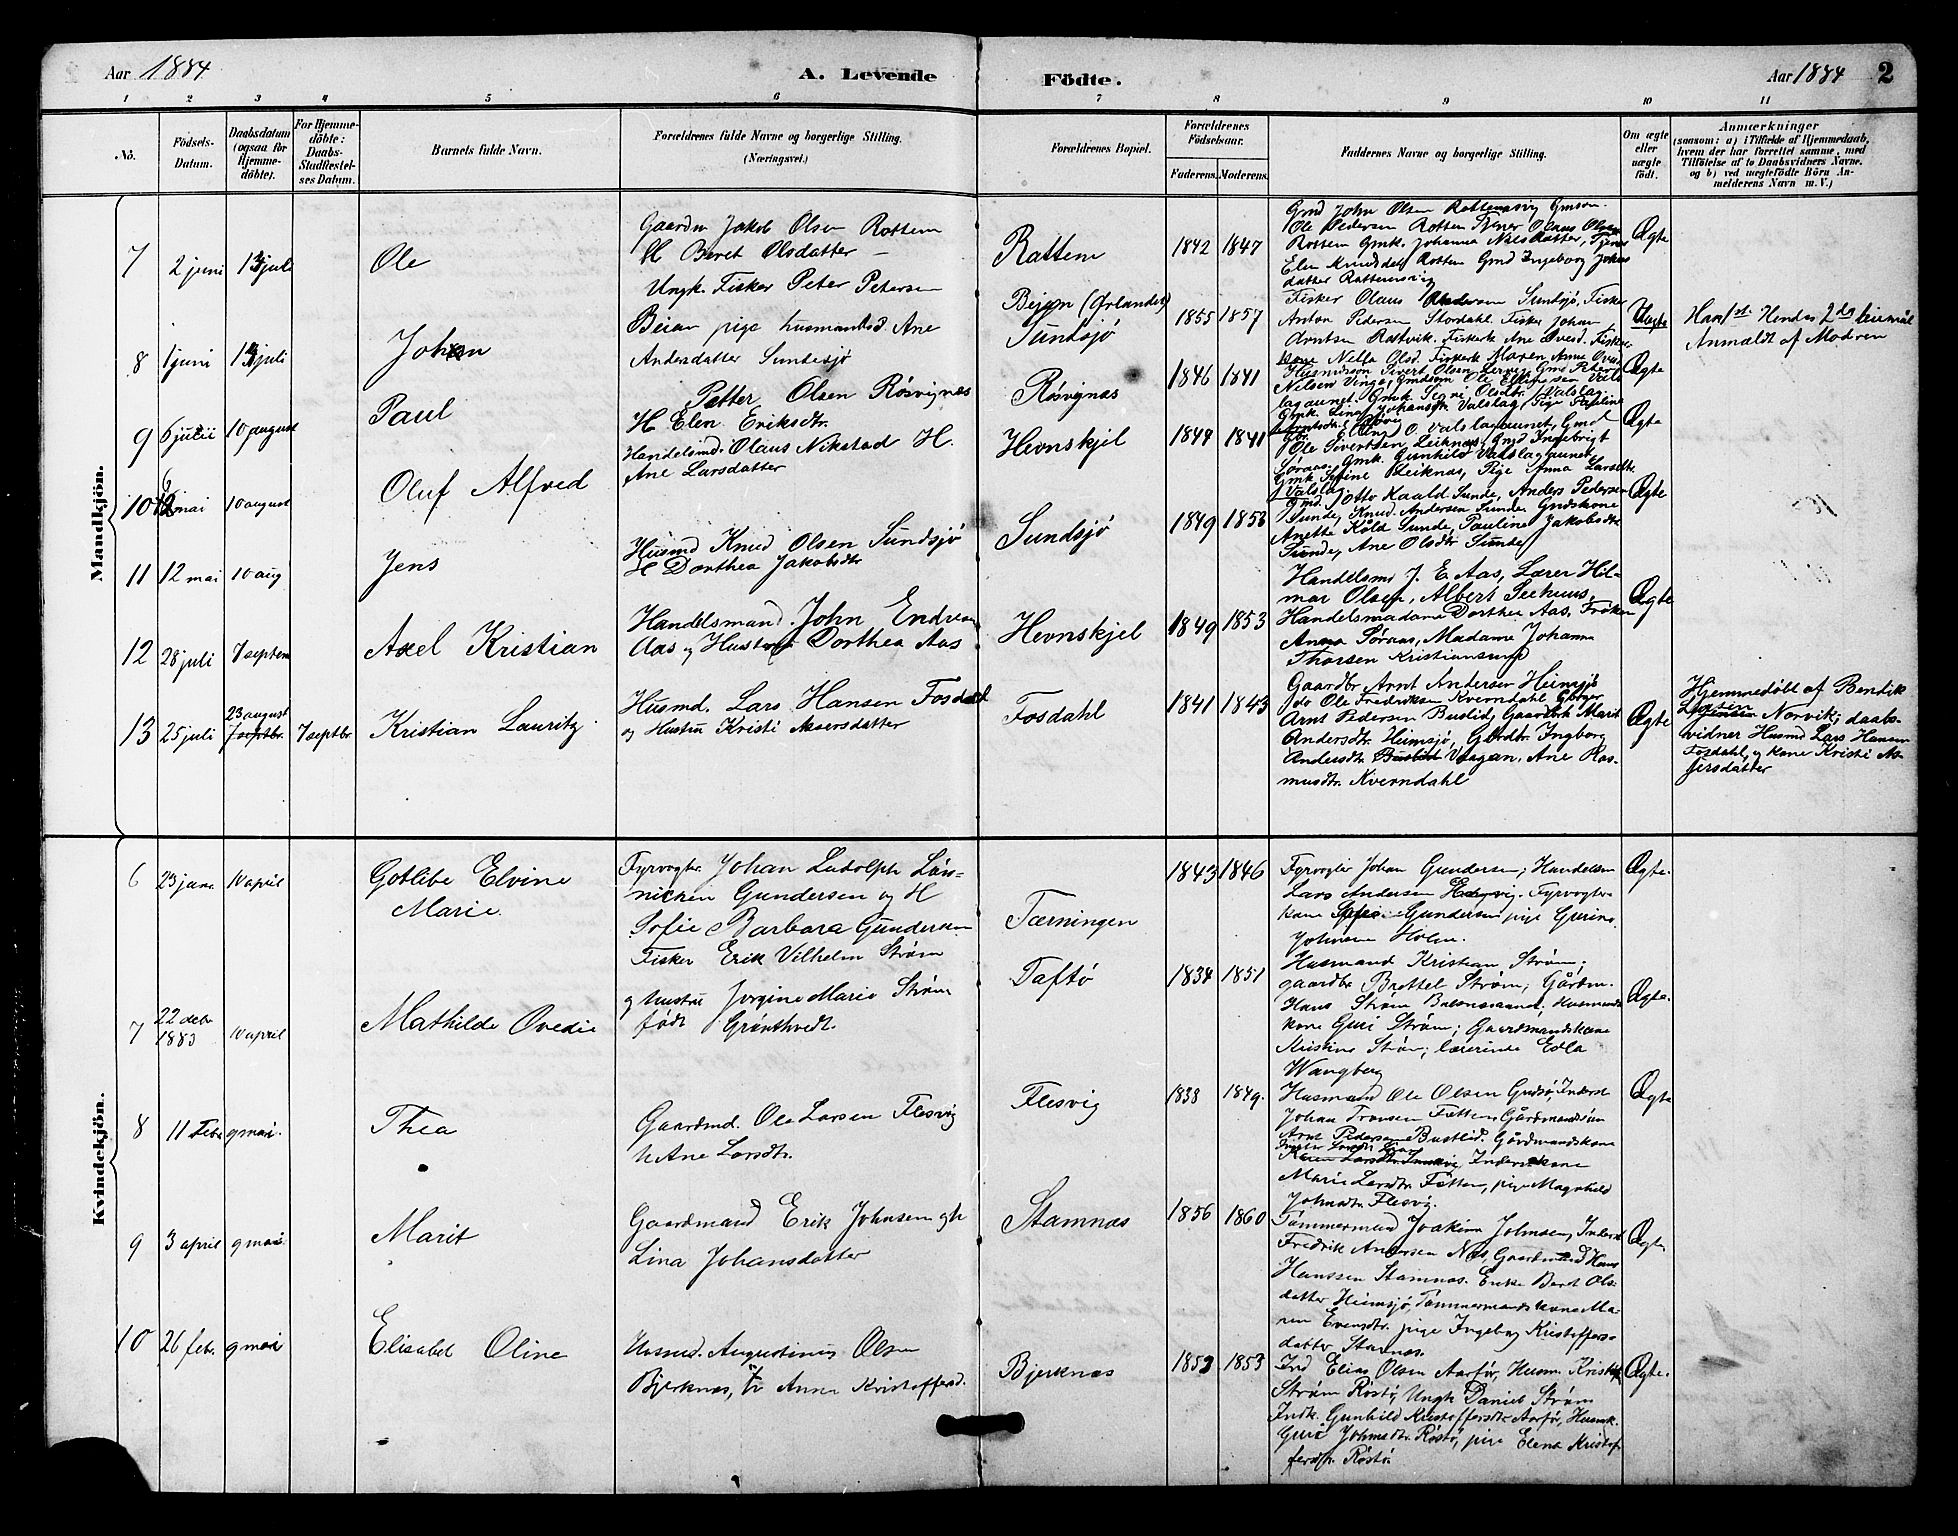 Aar 1884
A. Levende Födte.
Aar 1884 2
1 2 3 4 5 6 7 8 9 10 11
No.
Födsels-
Datum.
Daabsdatum
(ogsaa for
Hjemme-
döbte).
For Hjemme-
döbte:
Daabs-
Stadfæstel-
ses Datum.
Barnets fulde Navn.
Forældrenes fulde Navne og borgerlige Stilling.
(Næringsvei.)
Forældrenes Bopiel.
Forældrenes
Födselsaar.
Faderens. Moderens.
Faddernes Navne og borgerlige Stilling.
Om ægte
eller
uægte
födt.
Anmærkninger
(saasom: a) i Tilfælde af Hjemmedaab,
hvem der har forrettet samme, med
Tilföielse af to Daabsvidners Navne.
og b) ved uægtefödte Börn An-
melderens Navn m. V.)
Mandkjön.
7 2 juni 13 juli
Ole
Gaardm Jakob Olsen Rottem
H Beret Olsdatter —
Rottem
1842 1847
Gmd John Olsen Rottemsvig Gmsøn
Ole Pedersen Rottem Tjener Olaus Olsen
Rottem Gmk. Johanna Nilsdatter, Tjener
Elen Knudsdatr Rottem Gmd Ingeborg Johns
datter Rottemsvig
Ægte
8 1 juni 13 juli
Johan
Ungk. Fisker Peter Petersen
Beian pige husmandsd. Ane
Andersdatter Sundsjø
Bejan (Ørlandet)
Sundsjø
1855 1857
Fisker Olaus Pedersen Sundsjø, Fisker
Anton Pedersen Stordahl Fisker Johan
Arntsen Rottvik. Fiskerk Ane Ovesd. Fisker
kone Nella Olsd. Fiskerk Maren Anna Oved
Uægte
Hans 1st. Hendes 2det leiermål
Anmældt af Moderen
9 6 julii 10 august
Paul
Petter Olsen Røsvignæs
H Elen Eriksdtr.
Røsvignæs
1846 1841
Husmdsøn Sivert Olsen Gmd Peter
Nilsen Vinge, Gmdsøn Ole
lagaunet. Gmk Signi Olsdtr. Valslag
Gmk. Lina Johansdtr Valslag, Pige Pauline
Ægte
10 12 mai 10 august
Oluf Alfred
Handelsmd. Olaus Nikstad H.
Ane Larsdatter
Hevnskjel
1844 1841
Gbr. Elling O. Valslagaunet, Gmd
Ole Sivertsen Leiknæs, Gmd Ingebrigt
Søraas, Gmk. Gunhild Valslagaunet
Gmk Serine Leiknæs, Pige Anna Larsdtr
Valslag.
Ægte
11 12 mai 10 aug
Jens
Husmd Knud Olsen Sundsjø
H Dorthea Jakobsdtr
Sundsjø
1849 1853
Gmd. Otto Kaald Sunde, Anders Pedersen
Sunde, Knud Andersen Sunde Gmdskone
Anette Kåld Sunde, Pauline Jakobsdtr
Sunde, Ane Olsdtr Sunde
Ægte
12 28 juli 7 septem
Axel Kristian
Handelsmand. John Endresen
Aas og Hustru Dorthea Aas
Hevnskjel
1849 1853
Handelsmd J. E. Aas, Lærer Hil-
mar Olsen, Albert Seehuus,
Handelsmadame Dorthea Aas, Frøken
Anna Søraas, Madame Johanna
Thorsen Kristiansund
Ægte
13 25 juli 23 august 7 septbr. 7 septbr
Kristian Lauritz
Husmd. Lars Hansen Fosdahl
og Hustru Kristi Assersdatter
Fosdahl
1841 1843
Gaardbr Arnt Andersen Heimsjø
do Ole Fredriksen Kverndahl
Arnt Pedersen Buslid, Gaardbrk Marit
Andersdtr. Heimsjø, Gbrdtr. Ingborg
Andersdtr. Vaagan. Ane Ras-
musdtr. Kverndahl
Ægte
Hjemmedøbt af Bendik
Norvik; daabs-
vidner Husmd Lars Hansen
Fosdahl, og kone Kristi As-
sersdatter
Kvindekjön.
6 23 janr 10 april
Gotlibe Elvine
Marie.
Fyrvogter Johan Ludolph Løn-
nichen Gundersen og H
Sofie Barbara Gundersen
Tærningen
1843 1846
Fyrvogter Johan Gundersen; Handelsm
Lars Andersen Fyrvogter-
kone Sofie Gundersen pige Gurine
Johnsen Holm.
Ægte.
7 22 debr 1883 10 april
Mathilde Ovedie
Fisker Erik Vilhelm Strøm
og hustru Jorgine Marie Strøm
født Grønthvedt.
Taftø
1834 1851
Husmand Kristian Strøm;
gaardbr Brottel Strøm; Gårdm.
Hans Strøm Balsnesaunet; Husmands
kone Guri Strøm; Gaardmandskone
Kristine Strøm; lærerinde Edla
Wangberg
Ægte.
8 11 Febr 9 mari.
Thea
Gaardmd. Ole Larsen Flesvig
h Ane Larsdtr.
Flesvig
1838 1849.
Husmand Ole Olsen Gudsø, Inderst
Johan Tronsen Fætten Gårdmandssøn
Arnt Pedersen Bustlid. Gårdmandskone
Karen Larsdtr Inderstkone
Marie Larsdtr. Fætten, pige Magnhild
Johnsdtr. Flesvig.
Ægte
9 3 april 9 mari.
Marit
Gaardmand Erik Johnsen og h
Lina Johansdatter
Stamnæs
1856 1860
Tømmermand Joakim Johnsen, Inderst
Fredrik Andersen Næs, Gaardmand Hans
Hanssen Stamnæs. Enke Beret Ols-
datter Heimsjø, Tømmermandskone Ma-
ren Evensdtr. pige Ingeborg Kristoffers-
datter Stamnæs.
Ægte
10 26 febr. 9 mari
Elisabet Oline
Husmd. Augustinus Olsen
Bjerknæs, h Anna Kristoffersd.
Bjerknæs
1853 1853
Ind Elias Olsen Aarfør, Husm. Kristoff
Strøm Røstø, Ungk Daniel Strøm
Indk. Gunhild Kristoffersdtr Aarfør, Husmk.
Guri Johnsdtr. Røstø, pige Elena Kristof-
fersdtr Røstø.
Ægte.